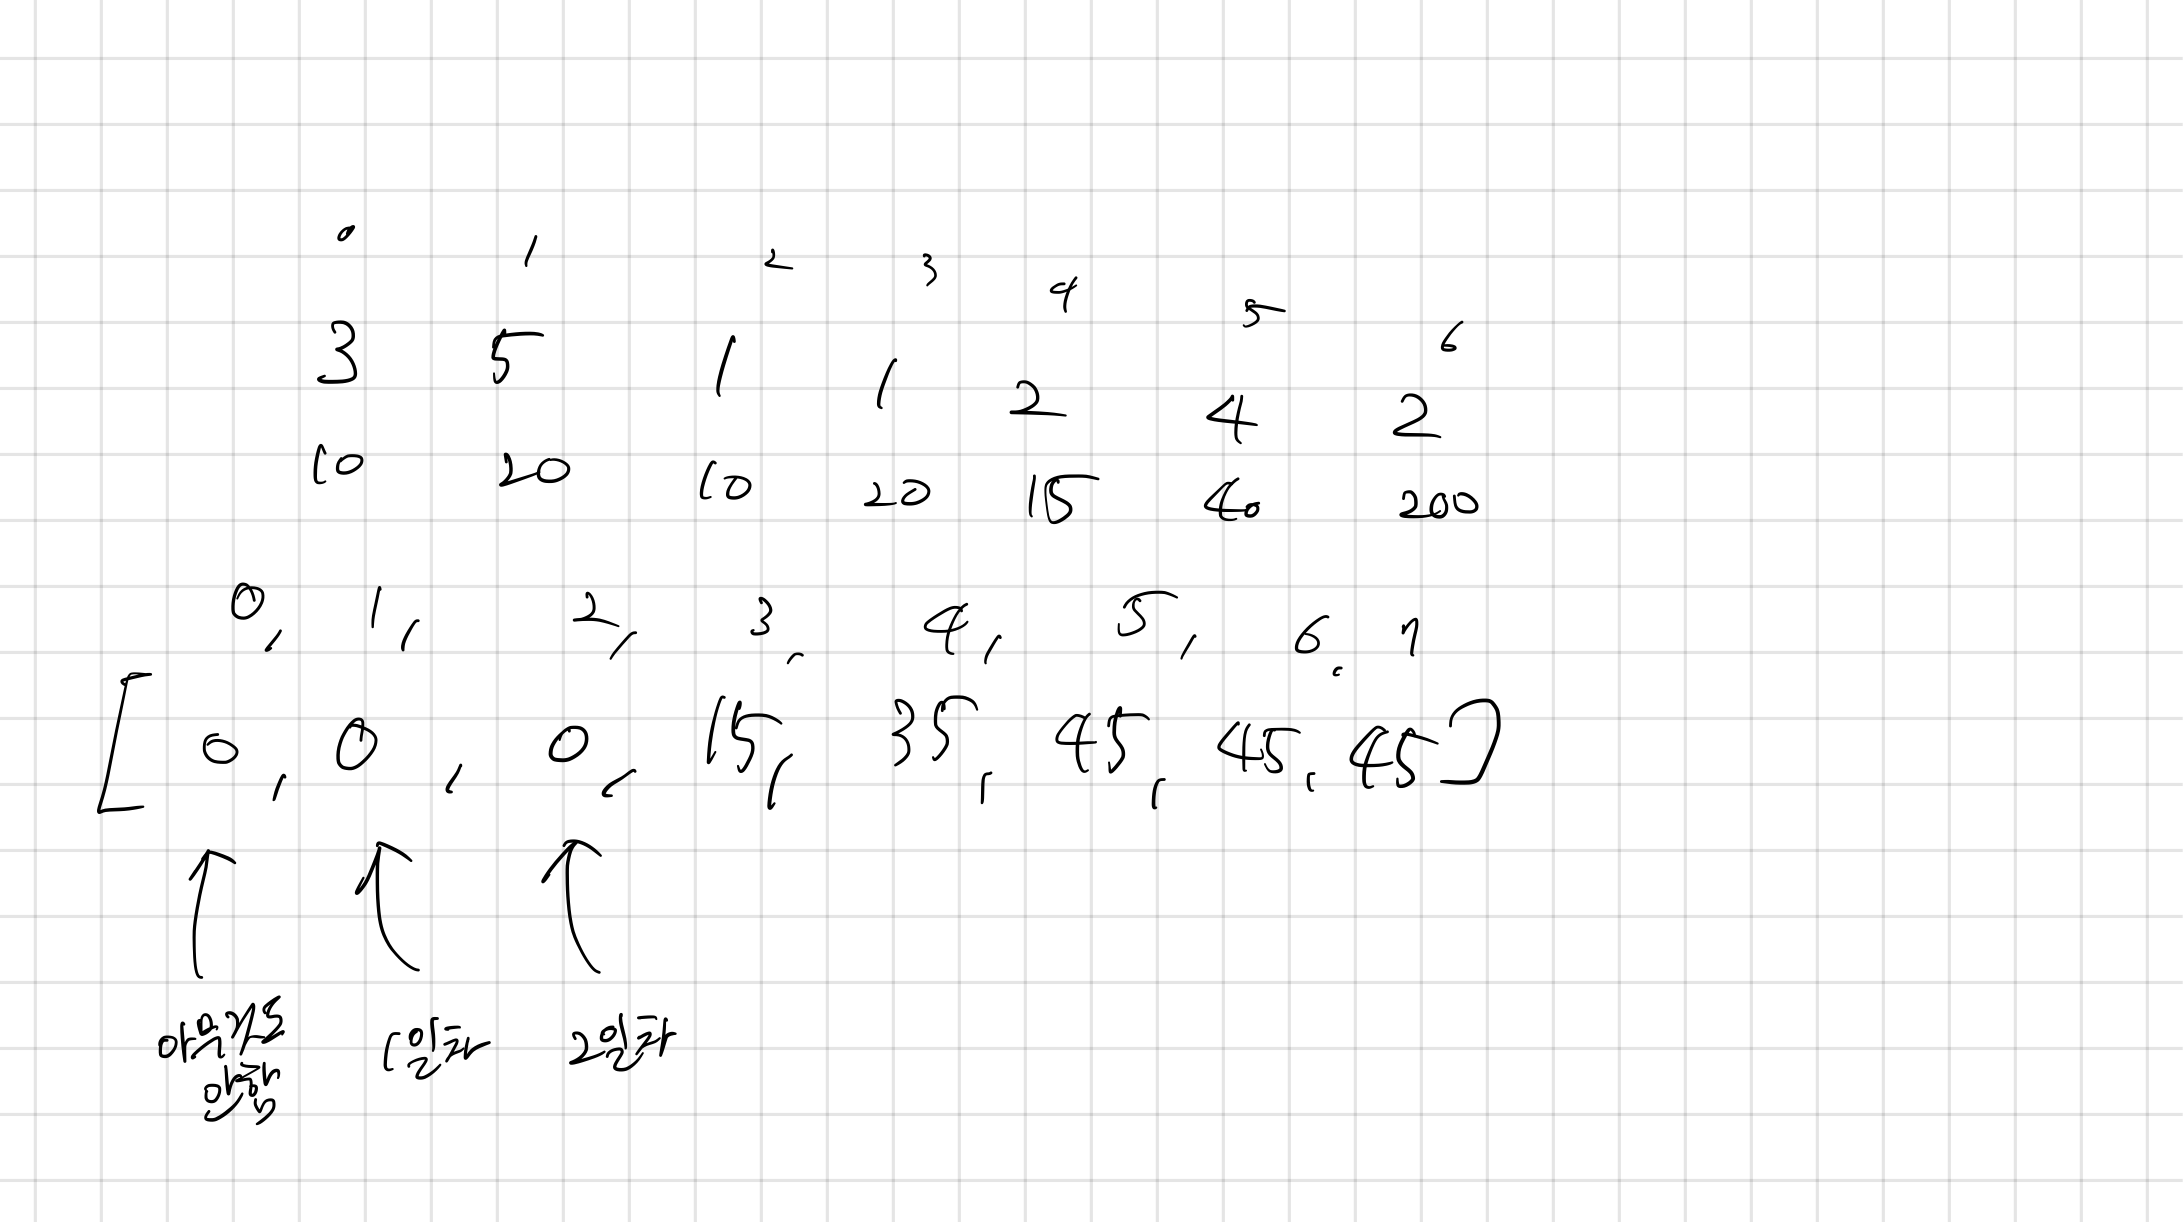 0 1 2 3 4 5 6
3 5 1 1 2 4 2
10 20 10 20 15 40 200
0, 1, 2, 3, 4, 5, 6. 7
[0, 0, 0, 15, 35, 45, 45, 45]
아무것도 1일차 2일차
안함